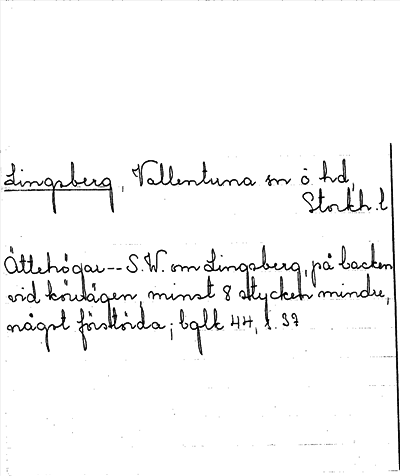 Lingsberg, Vallentuna sn o. hd,
Stockh. l
Ättehögar -- S.W. om Lingsberg, på backen
vid körvägen, minst 8 stycken mindre,
något förstörda; bglk 44, s. 37